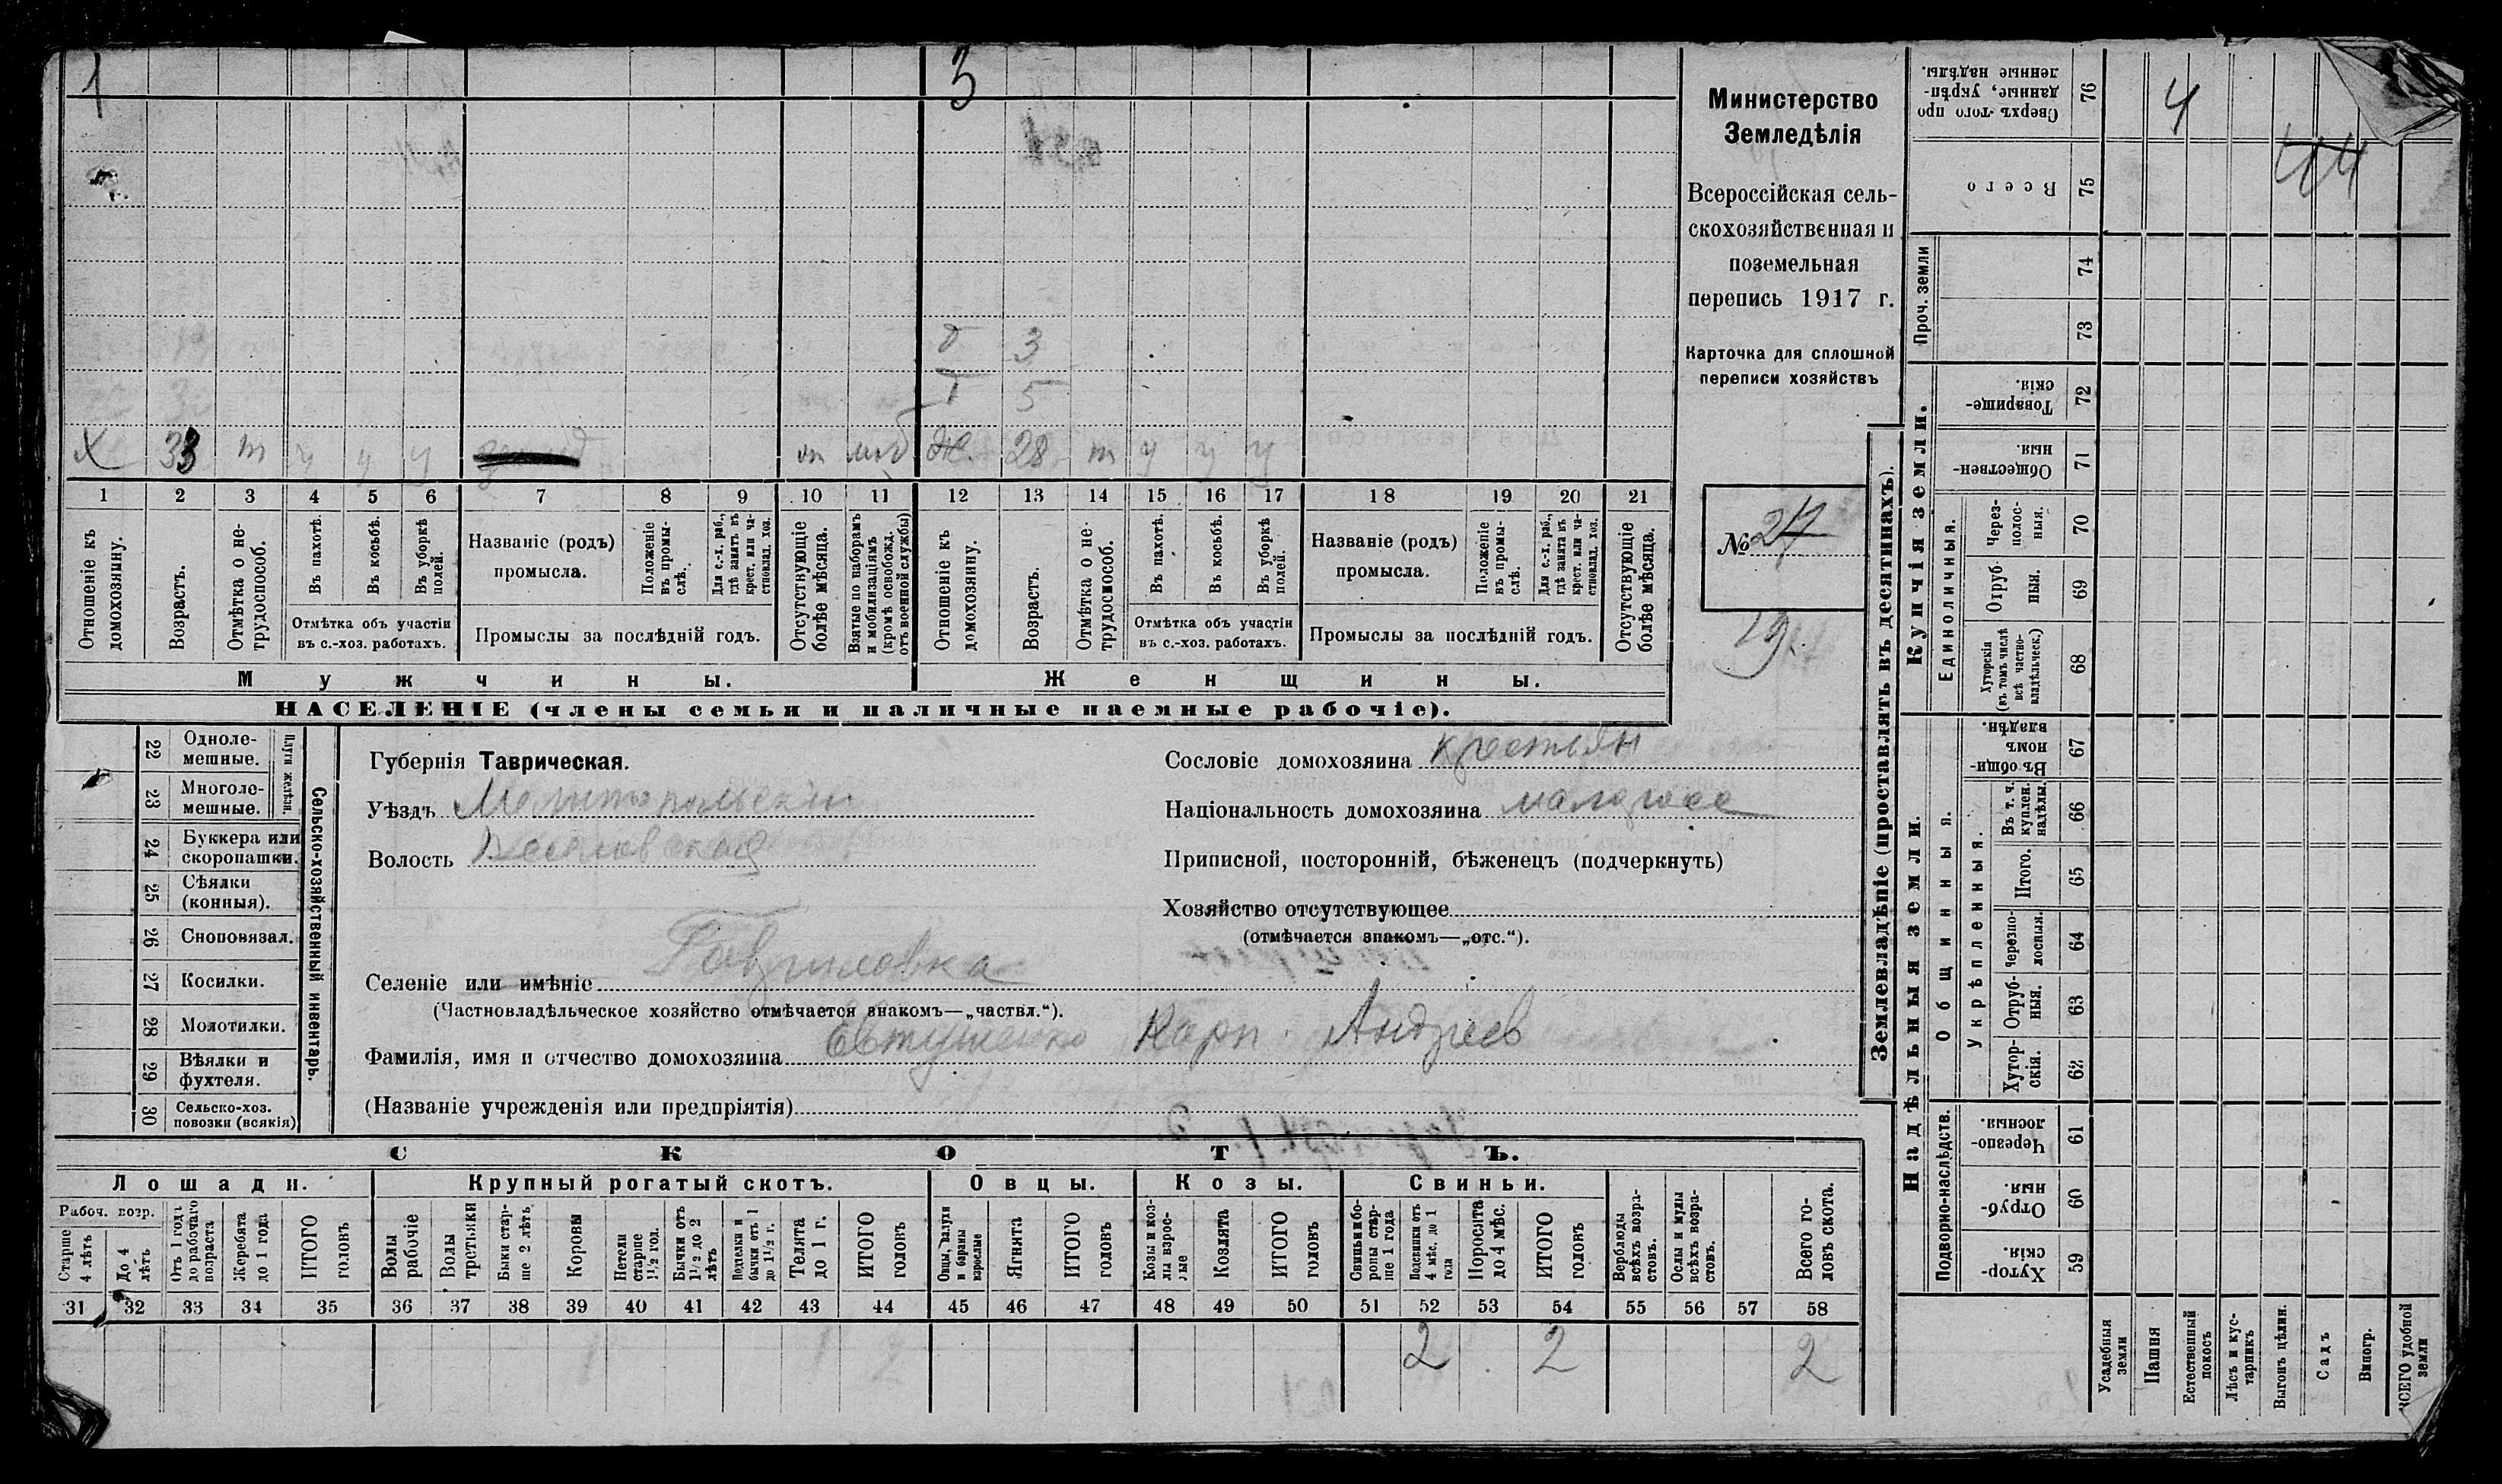 1 3
Министерство
Земледѣлія
Всероссійская сель-
скохозяйственная и
поземельная
перепись 1917 г.
Карточка для сплошной
переписи хозяйствъ
№ 27
29
д 3
д 5
х 33 т у у у от моб ж. 28 т у у у
1 2 3 4 5 6 7 8 9 10 11 12 13 14 15 16 17 18 19 20 21
Отношеніе къ домохозяину.
Возрастъ.
Отмѣтка о не-трудоспособ.
Въ пахотѣ.
Въ косьбѣ.
Въ уборкѣ полей.
Отмѣтка объ участіи
въ с.-хоз. работахъ.
Названіе (родъ)
промысла.
Положеніе въ промы-слѣ.
Для с.-х. раб., гдѣ занятъ въ крест. или ча-стновлад. хоз.
Промыслы за послѣдній годъ.
Отсутствующіе болѣе мѣсяца.
Взятые по наборамъ и мобилизаціямъ (кромѣ освобожд. отъ военной службы)
Отношеніе къ домохозяину.
Возрастъ.
Отмѣтка о не-трудоспособ.
Въ пахотѣ.
Въ косьбѣ.
Въ уборкѣ полей.
Отмѣтка объ участіи
въ с.-хоз. работахъ.
Названіе (родъ)
промысла.
Положеніе въ промы-слѣ.
Для с.-х. раб., гдѣ занята въ крест. или ча-стновлад. хоз.
Промыслы за послѣдній годъ.
Отсутствующіе болѣе мѣсяца.
Мужчины. Женщины.
НАСЕЛЕНІЕ (члены семьи и наличные наемные рабочіе).
22 Одноле-мешные.
23 Многоле-мешные.
Плуги желѣзн.
24 Буккера или скоропашки.
25 Сѣялки (конныя).
26 Сноповязал.
27 Косилки.
28 Молотилки.
29 Вѣялки и фухтеля.
30 Сельско-хоз. повозки (всякія)
Сельско-хозяйственный инвентарь.
Губернія Таврическая.
Уѣздъ Мелитопольскій
Волость Веселовская
Селеніе или имѣніе Гавриловка
(Частновладѣльческое хозяйство отмѣчается знакомъ—„частвл.“).
Фамилія, имя и отчество домохозяина Евтушенко Карп Андреев
(Названіе учрежденія или предпріятія)
Сословіе домохозяина крестьян
Національность домохозяина малоросс
Приписной, посторонній, бѣженецъ (подчеркнуть)
Хозяйство отсутствующее
(отмѣчается знакомъ—„отс.“).
СКОТЪ.
Лошади. Крупный рогатый скотъ. Овцы. Козы. Свиньи.
Рабоч. возр.
Старше 4 лѣтъ
До 4 лѣтъ
Отъ 1 года до рабочаго возраста
Жеребята до 1 года
ИТОГО головъ
Волы рабочіе
Волы третьяки
Быки стар-ше 2 лѣтъ
Коровы
Нетели старше 1½ год.
Бычки отъ 1½ до 2 лѣтъ
Подтелки и бычки отъ 1 до 1½ г.
Телята до 1 г.
ИТОГО головъ
Овцы, валухи и бараны взрослые
Ягнята
ИТОГО головъ
Козы и коз-лы взрос-лые
Козлята
ИТОГО головъ
Свиньи и бо-ровы стар-ше 1 года
Подсвинки отъ 4 мѣс. до 1 года
Поросята до 4 мѣс.
ИТОГО головъ
Верблюды всѣхъ возра-стовъ.
Ослы и мулы всѣхъ возра-стовъ.
Всего го-ловъ скота.
31 32 33 34 35 36 37 38 39 40 41 42 43 44 45 46 47 48 49 50 51 52 53 54 55 56 57 58
2 2 2
Землевладѣніе (проставлять въ десятинахъ).
Надѣльныя земли.
Купчія земли.
Проч. земли
Подворно-наслѣдств.
Общинныя.
Укрѣпленныя.
Единоличныя.
Сверхъ того про данные, укрѣп-ленные надѣлы. 76
Всего 75
74
73
Товарище-скія. 72
Обществен-ныя. 71
Через-полос-ныя. 70
Отруб-ныя. 69
Хуторскія (въ томъ числѣ всѣ частно-владѣльческ.) 68
Въ общи-номъ владѣн. 67
Въ т. ч. куплен. надѣлы. 66
Итого. 65
Черезпо-лосныя. 64
Отруб-ныя. 63
Хутор-скія. 62
Черезпо-лосныя. 61
Отруб-ныя. 60
Хутор-скія. 59
4
44
Усадебныя земли
Пашня
Естественный покосъ
Лѣсъ и кус-тарникъ
Выгонъ цѣлин.
Садъ
Виногр.
ВСЕГО удобной земли